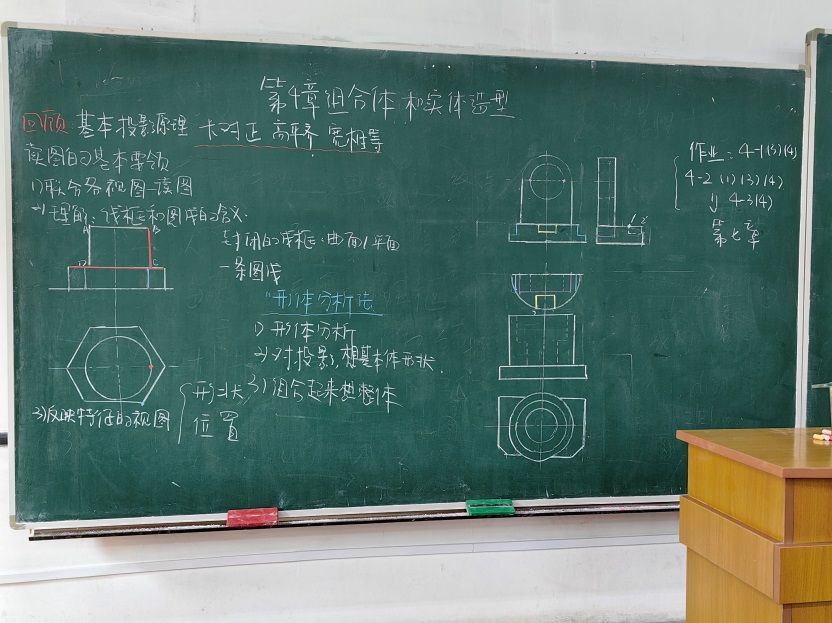 第4章 组合体和实体造型
回顾 基本投影原理 长对正 高平齐 宽相等
读图的基本要领
1)联合各视图一读图
2)理解:线框和图线的含义.
A B
D C
封闭的线框:曲面/平面
一条图线
"形体分析法
1) 形体分析
2)对投影,想基本体形状.
3)组合起来想整体
3)反映特征的视图
形状
位置
1 2
作业:4-1(3)(4)
4-2 (1)(3)(4)
4-3(4)
第七章